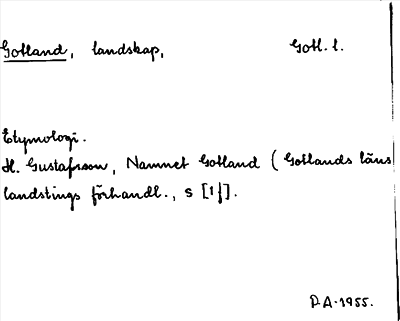 Gotland, landskap, Gotl. l.
Etymologi.
H. Gustafsson, Namnet Gotland (Gotlands läns
landstings förhandl., s [1f].
D.A. 1955.